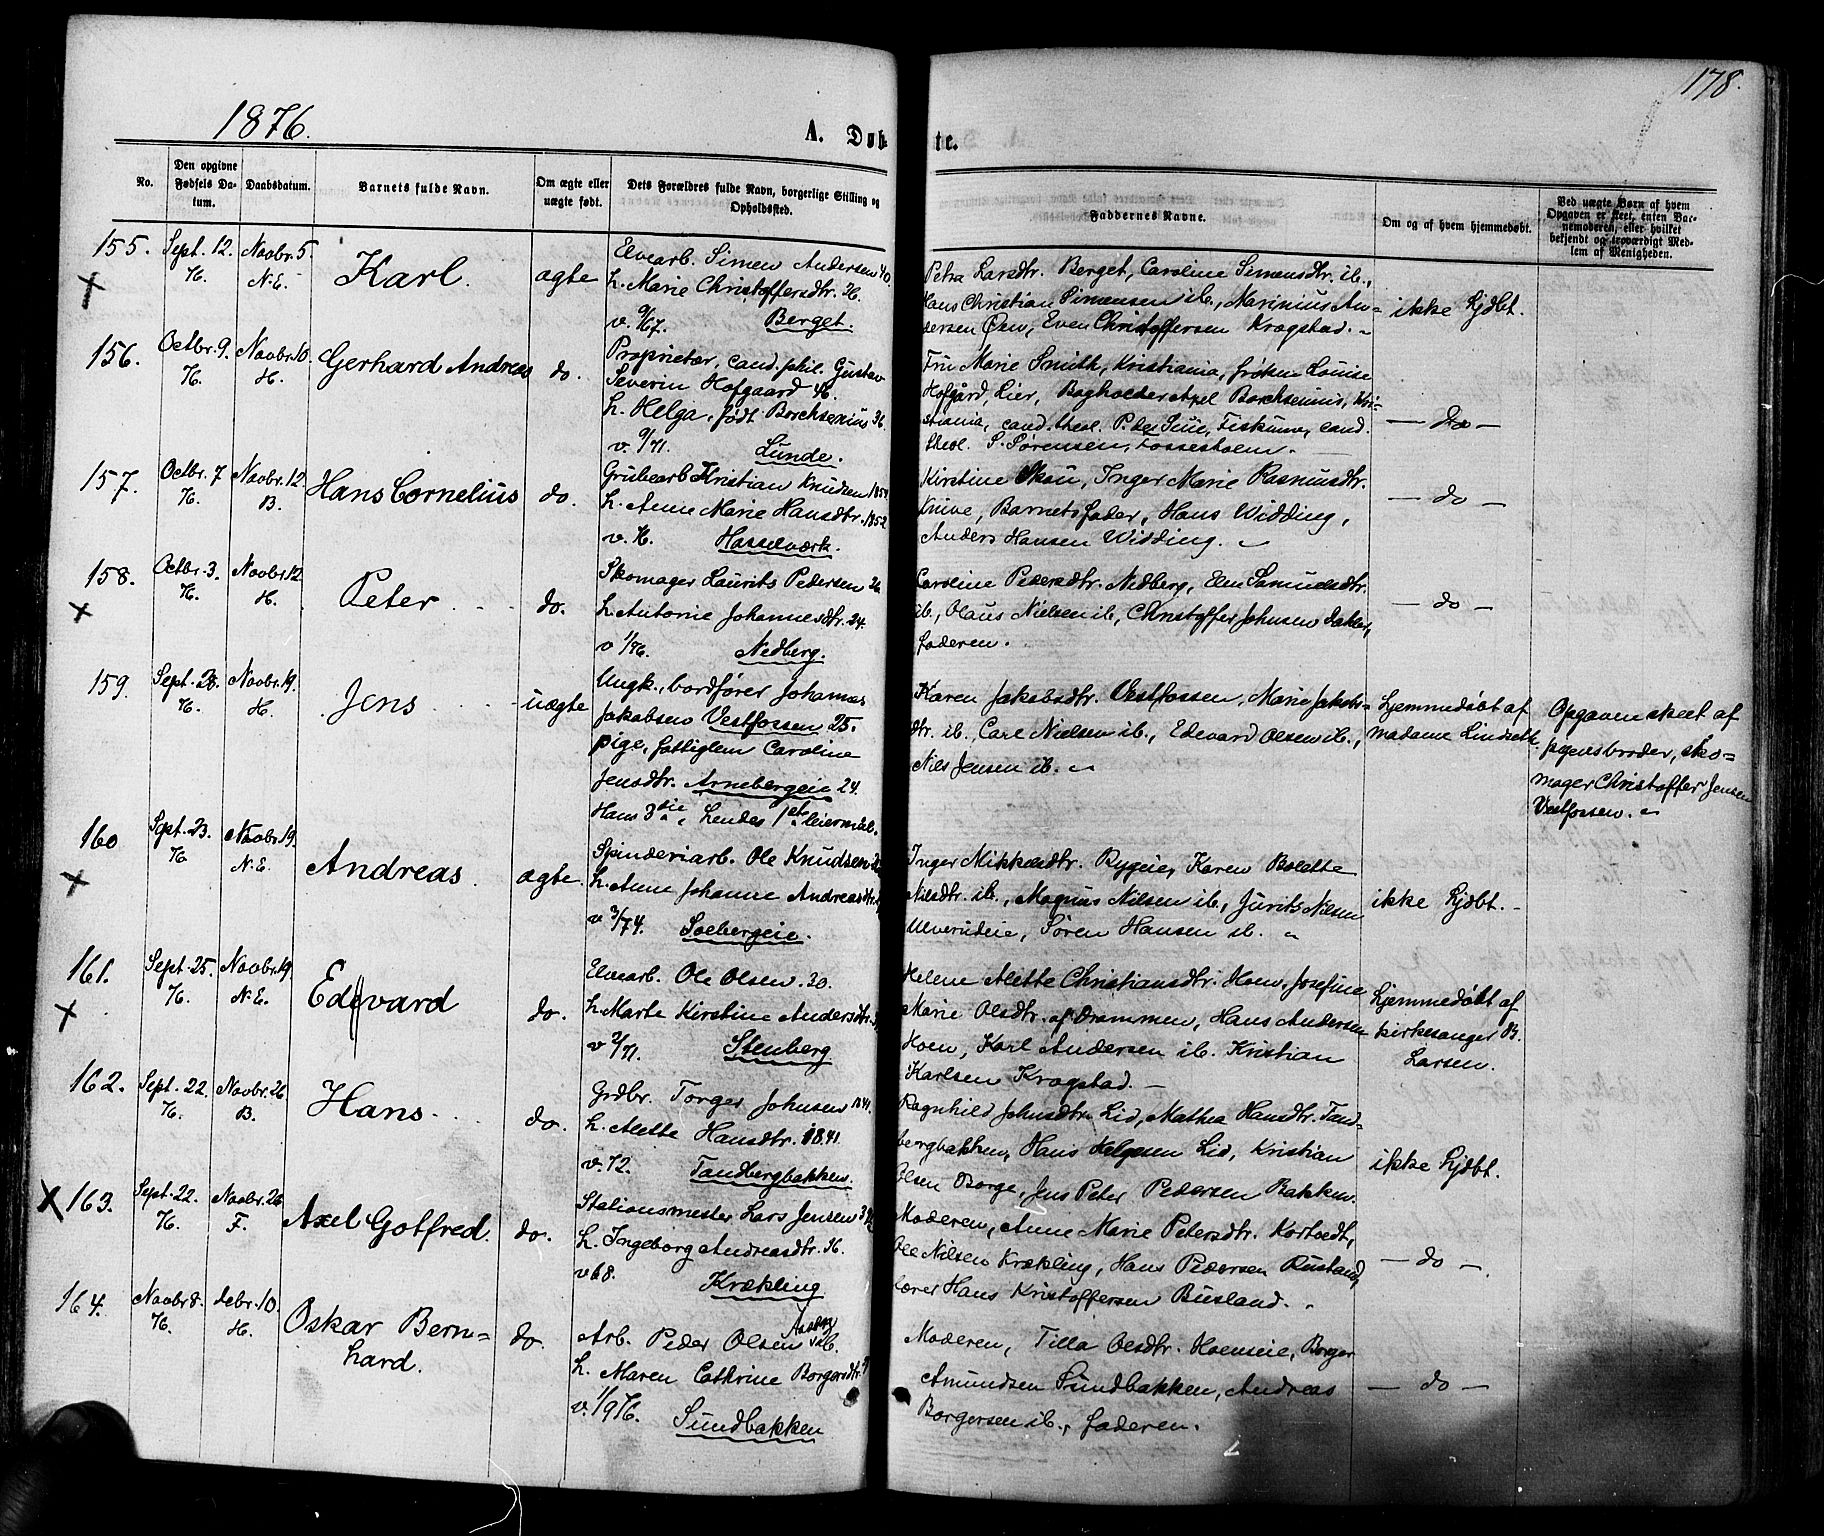 178.
1876.
A. Døb-
te.
No.
Den opgivne Fødsels Da-tum.
Daabsdatum.
Barnets fulde Navn.
Om ægte eller uægte født.
Dets Forældres fulde Navn, borgerlige Stilling og Opholdssted.
Faddernes Navne.
Om og af hvem hjemmedøbt.
Ved uægte Børn af hvem Opgaven er skeet, enten Bar-nemoderen, eller hvilket bekjendt og troværdigt Med-lem af Menigheden.
155.
Sept. 12.
Novbr. 5.
N.E.
Karl.
ægte
Elvearb. Simen Andersen 40.
h. Marie Christoffersdtr. 36.
v. 9/67. Berget.
Petra Larsdtr. Berget, Caroline Simensdtr. ib.,
Hans Christian Simensen ib., Marinius An-
dersen Øen, Even Christoffersen Krogstad.
ikke hjdbt.
156.
Octbr. 9.
Novbr. 10.
H.
Gerhard Andreas
do.
Proprietær, cand. phil. Gustav
Severin Hofgaard 46.
h. Helga, født Borchsenius 36.
v. 9/71. Lunde.
Fru Marie Smith, Kristiania, frøken Louise
Hofgård, Lier, Bogholder Axel Borchsenius, Kri-
stiania, cand. theol. Peder Fiskum, cand.
theol. S. Sørensen, Fossesholm.
- Do -
157.
Octbr. 7
Novbr. 12.
B.
Hans Cornelius
do.
Grubearb Kristian Knudsen 1854.
h. Anne Marie Hansdtr. 1852.
v. Hasselværk.
Kirstine Skau, Inger Marie Rasmusdtr.
Knive, Barnets fader, Hans Widding,
Anders Hansen Widding.
- do -
158.
Octbr. 3.
Novbr. 12.
H.
Peter
do.
Skomager Laurits Pedersen 26
h. Antonie Johannesdtr. 24.
v 1/76. Nedberg.
Caroline Pedersdtr. Nedberg, Elen Samuelsdtr.
ib., Olaus Nielsen ib., Christoffer Johnsen,
faderen.
- do -
159.
Sept. 28.
Novbr. 19.
H.
Jens
uægte
Ungk., bordfører Johannes
Jakobsen Vestfossen 25.
pige, fattiglem Caroline
Jensdtr. Arnebergeie 24.
Hans 3die, hendes 1ste leiermål.
Karen Jakobsdtr. Vestfossen, Marie Jakobs-
dtr. ib., Carl Nielsen ib., Edvard Olsen ib.,
Nils Jensen ib.
hjemmedøbt af
madame Lindseth.
Opgaven skeet af
pigens broder, sko-
mager Christoffer Jensen
Vestfossen.
160
Sept. 23.
Novbr. 19.
N.E.
Andreas
ægte.
Spinderiarb. Ole Knudsen
h. Anne Johanne Andreasdtr.
v 3/74. Solbergeie.
Inger Mikkelsdtr. Bygeie, Karen Bolette
Nilsdtr. ib., Magnus Nilsen ib., Jurits Nilsen
Ulverudeie, Søren Hansen ib.
ikke hjdbt.
161.
Sept. 25.
Novbr. 19.
N.E.
Edvard
do.
Elvearb. Ole Olsen. 30.
h. Marte Kirstine Andersdtr.
v 2/71. Stenberg
Helene Alette Christiansdtr. Hoen, Josefine
Marie Olsdtr. af Drammen, Hans Andersen
Hoen, Karl Andersen ib. Kristian
Karlsen Krogstad.
hjemmedøbt af
kirkesanger B.
Larsen.
162.
Sept. 22.
Novbr. 26
B.
Hans.
do.
Grdbr. Torger Johnsen 1841.
h. Alette Hansdtr. 1841.
v. 72. Tandbergbakken.
Ragnhild Johnsdtr. Lid, Mathea Hansdtr. Tand-
bergbakken, Hans Helgesen Lid, Kristian
Olsen Borge, Jens Peter Pedersen Bakken.
ikke hjdbt.
163.
Sept. 22.
Novbr. 26
F.
Axel Gotfred.
do.
Stationsmester Lars Jensen
h. Ingeborg Andreasdtr. 36.
v 68. Krækling
Moderen, Anne Marie Petersdtr. Kortvedt,
Ole Nilsen Krækling, Hans Pedersen Rustand,
lærer Hans Kristoffersen Busland.
- do -.
164.
Novbr 8.
debr. 10.
H.
Oskar Bern-
hard.
do.
Arb. Peder Olsen
h. Maren Cathrine Borgersdtr.
v. 1/9 76. Sundbakken
Moderen, Tilla Olsdtr. Hoenseie, Borger
Amundsen Sundbakken, Andreas
Borgersen ib., faderen.
- do -